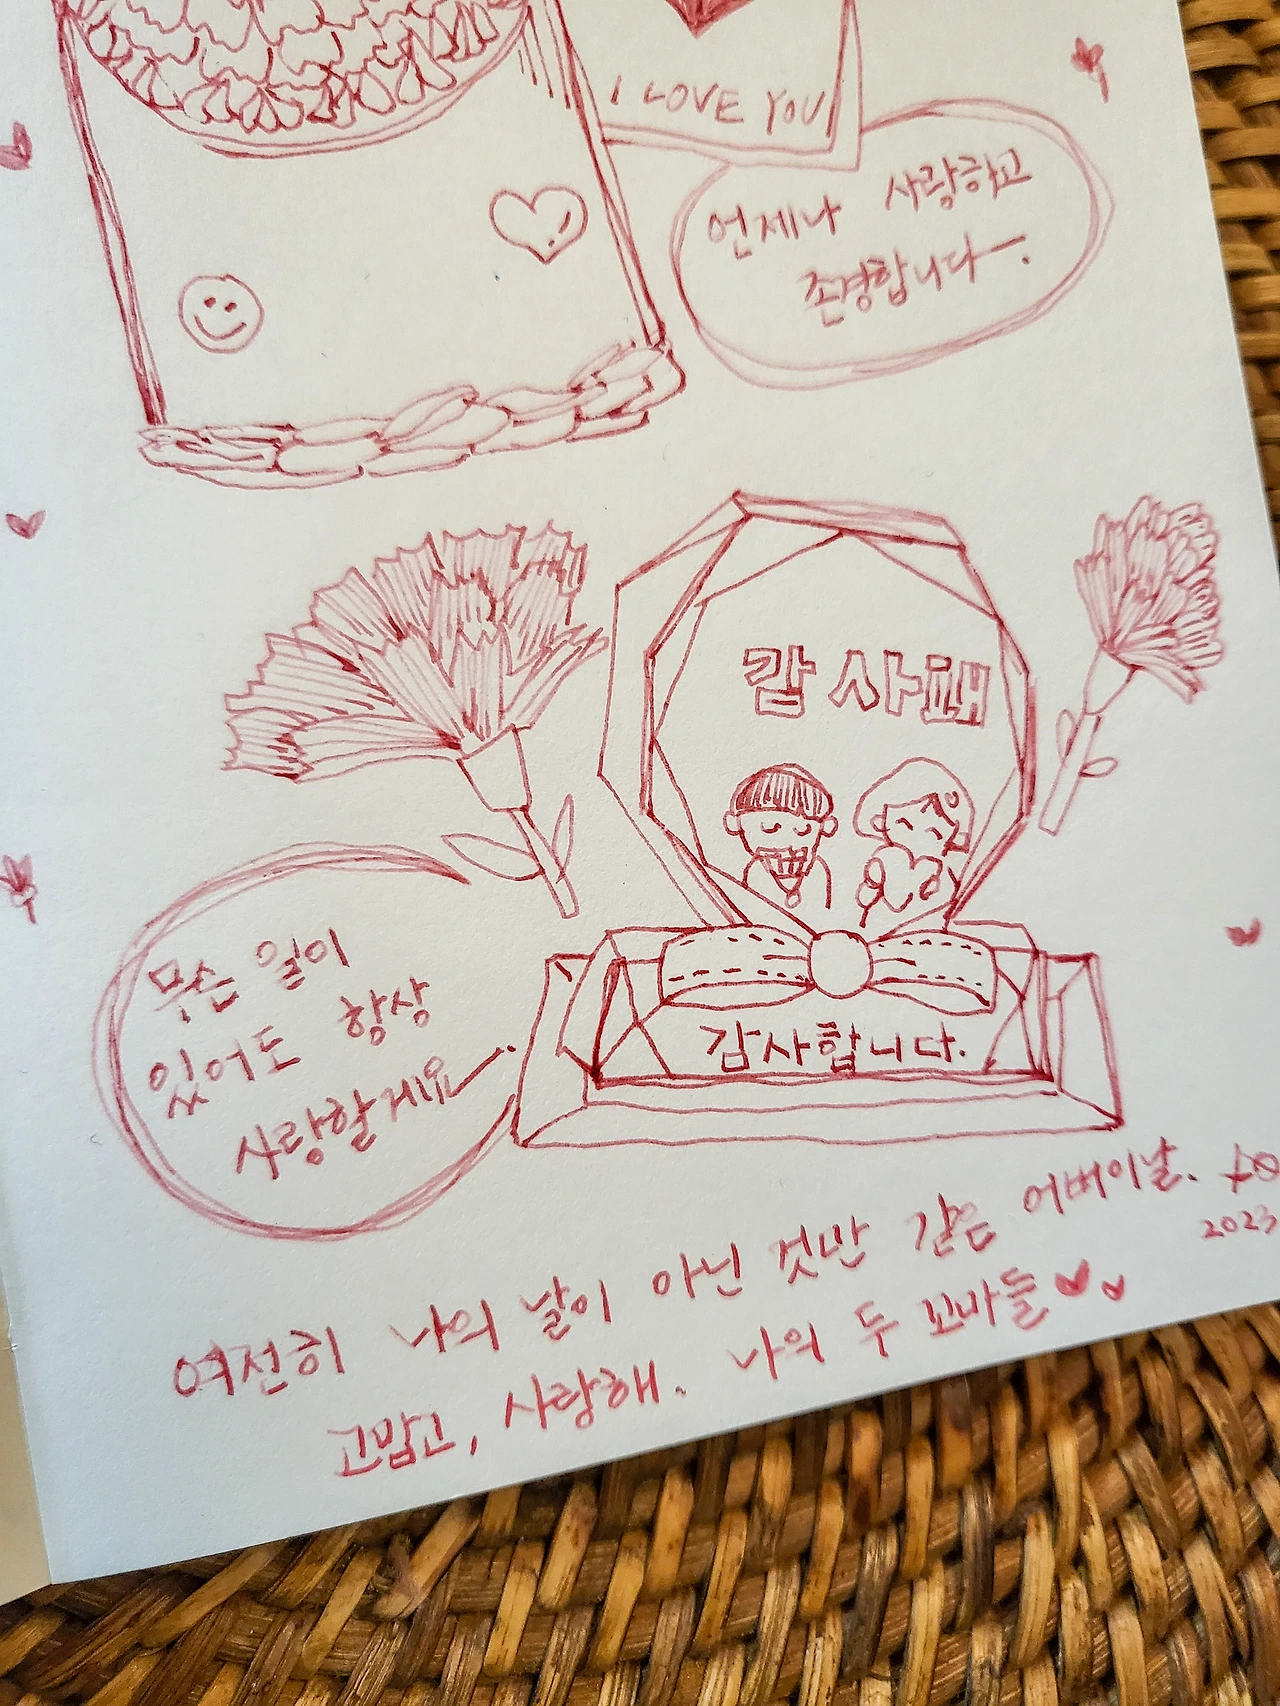 I LOVE YOU
언제나 사랑하고
존경합니다.
감사패
감사합니다.
무슨 일이
있어도 항상
사랑할게요.
여전히 나의 날이 아닌 것만 같은 어버이날.
2023
고맙고, 사랑해. 나의 두 꼬마들